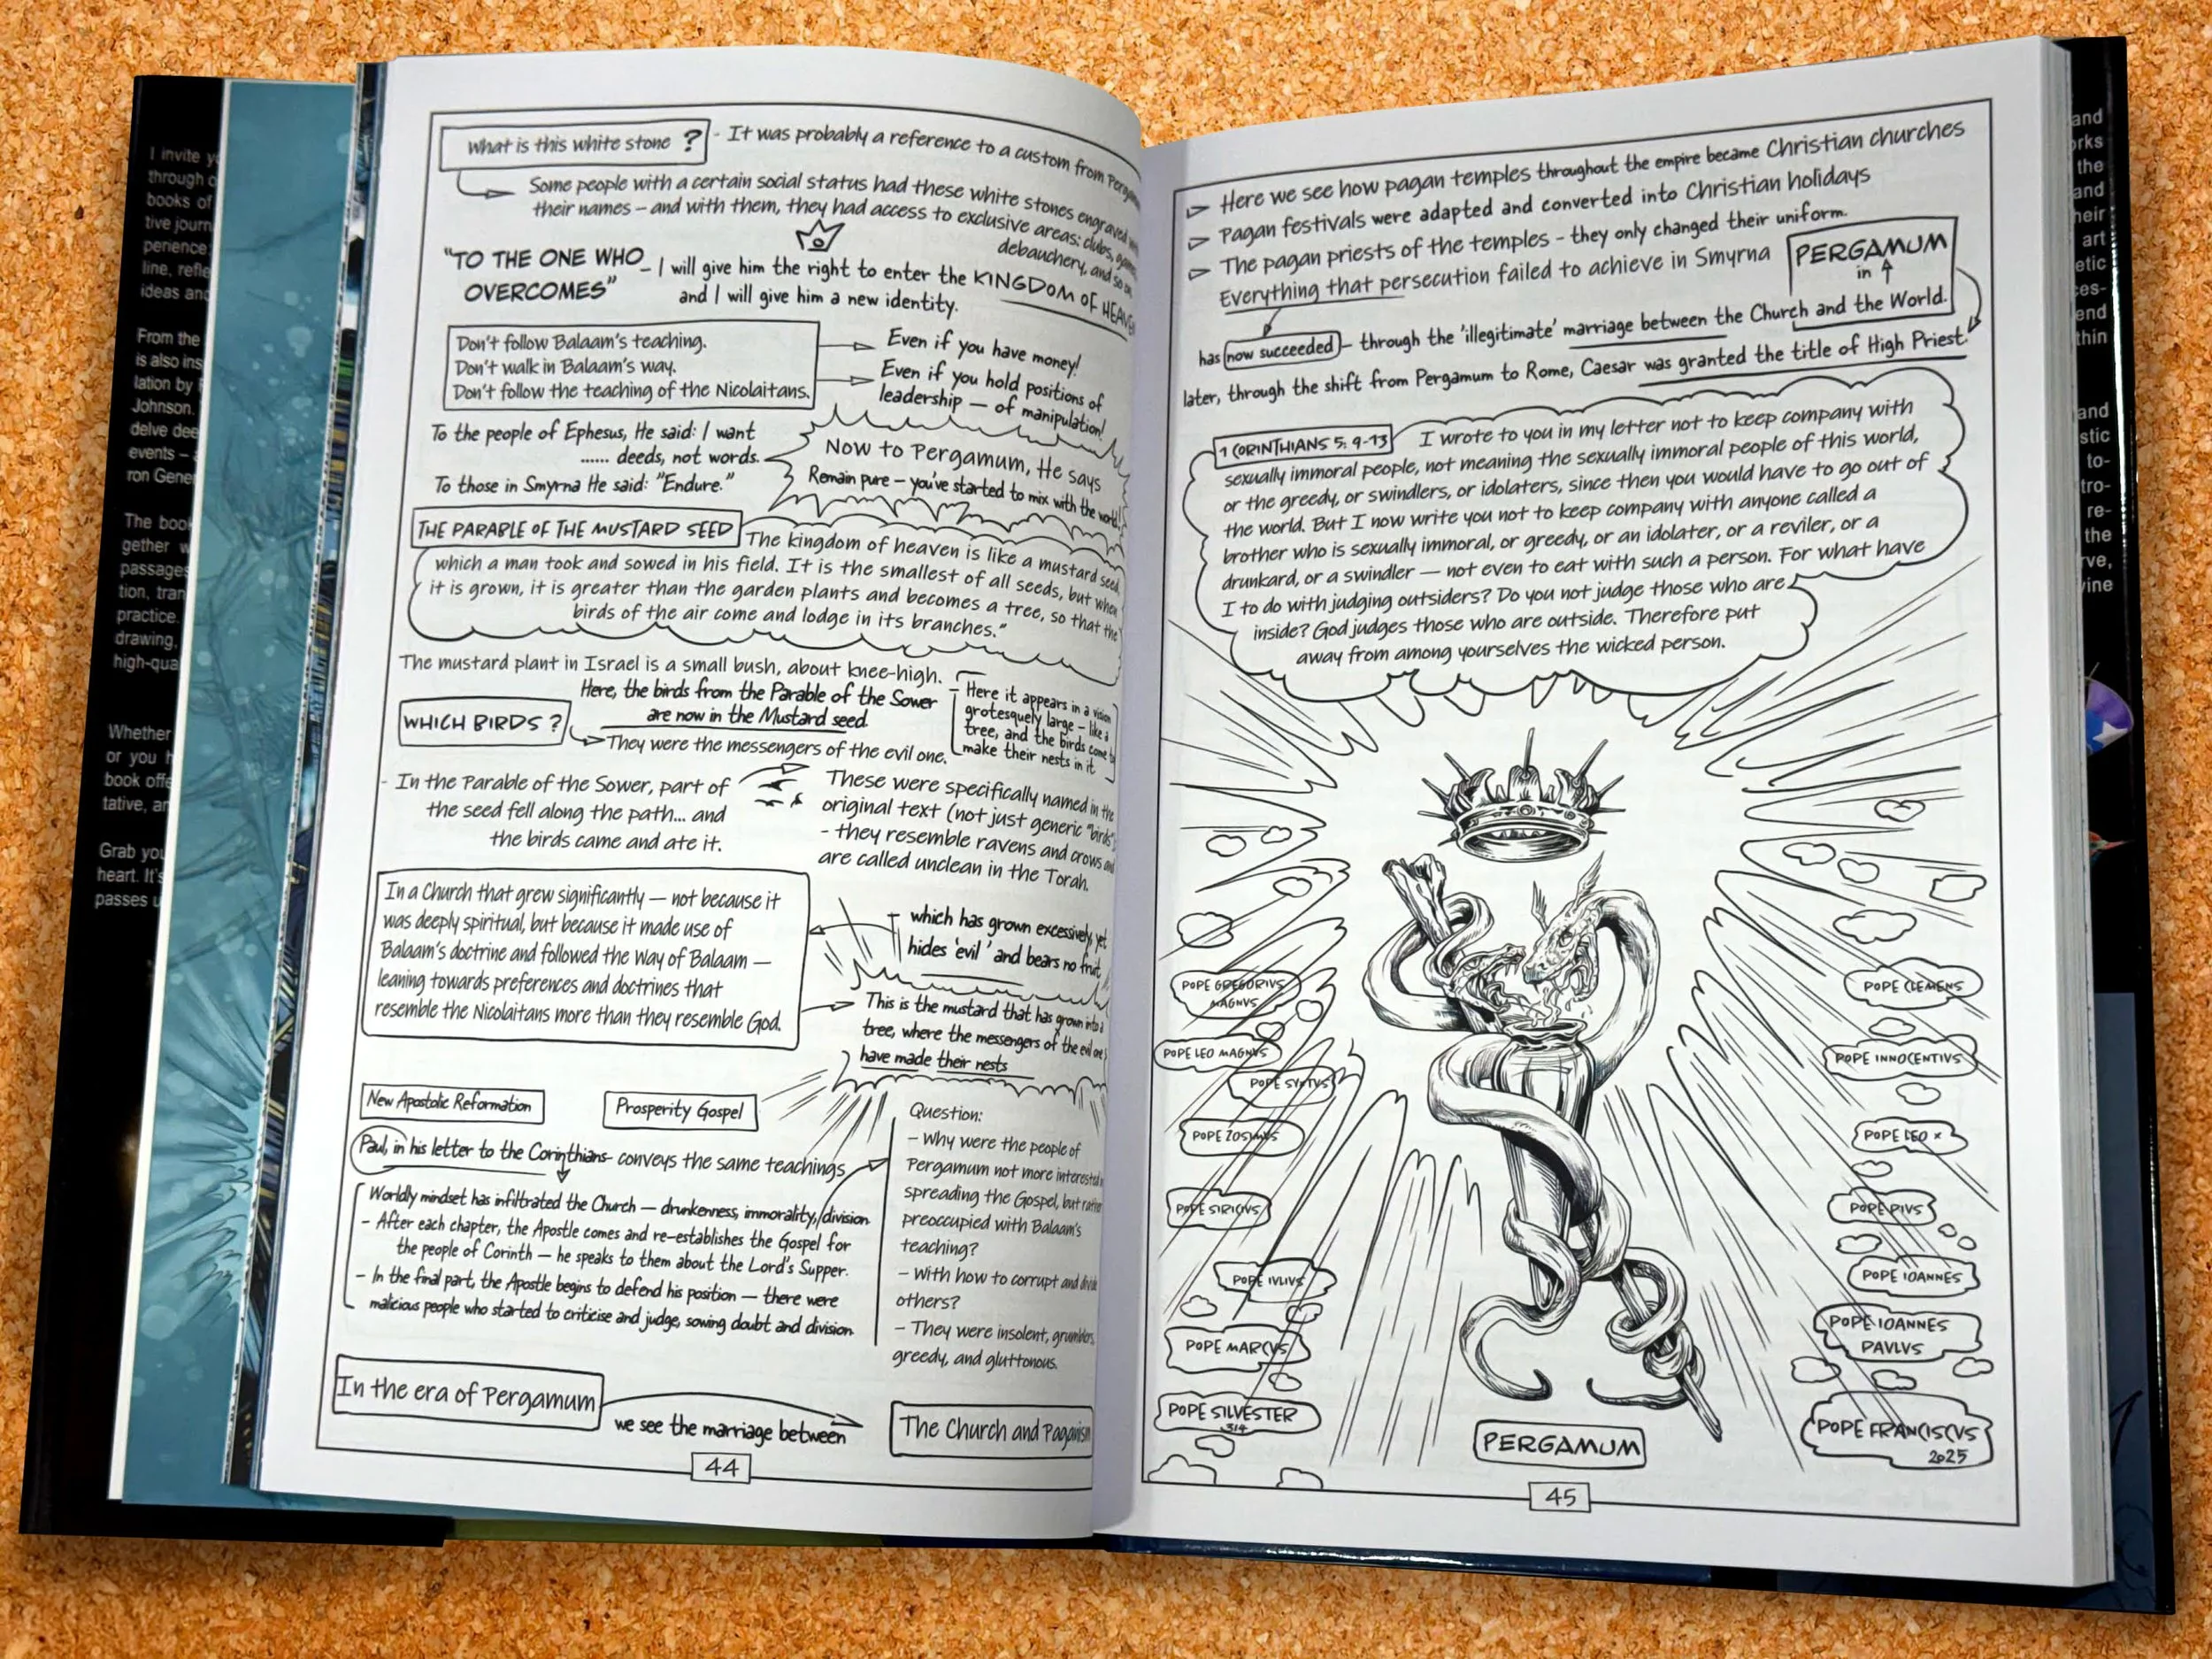 I invite
through
books of
tive journ
perience
line, refle
ideas and
From the
is also ins
lation by
Johnson.
delve dee
events –
ron Gene
The boo
gether w
passages
tion, tran
practice.
drawing,
high-qua
Whether
or you h
book offe
tative, an
Grab you
heart. It's
passes u
What is this white stone ? - It was probably a reference to a custom from
Some people with a certain social status had these white stones engraved
their names – and with them, they had access to exclusive areas: clubs,
debauchery, and so on
"TO THE ONE WHO – I will give him the right to enter the KINGDOM OF HEAVEN
OVERCOMES" and I will give him a new identity.
Don't follow Balaam's teaching.
Don't walk in Balaam's way.
Don't follow the teaching of the Nicolaitans.
Even if you have money!
Even if you hold positions of
leadership — of manipulation!
To the people of Ephesus, He said: I want
...... deeds, not words.
To those in Smyrna He said: "Endure."
Now to Pergamum, He says
Remain pure – you've started to mix with the world!
THE PARABLE OF THE MUSTARD SEED
The kingdom of heaven is like a mustard seed
which a man took and sowed in his field. It is the smallest of all seeds, but when
it is grown, it is greater than the garden plants and becomes a tree, so that the
birds of the air come and lodge in its branches."
The mustard plant in Israel is a small bush, about knee-high.
Here, the birds from the Parable of the Sower
are now in the Mustard seed.
Here it appears in a vision
grotesquely large – like a
tree, and the birds come to
make their nests in it
WHICH BIRDS ?
They were the messengers of the evil one.
- In the Parable of the Sower, part of
the seed fell along the path... and
the birds came and ate it.
These were specifically named in the
original text (not just generic "birds"
- they resemble ravens and crows and
are called unclean in the Torah.
In a Church that grew significantly — not because it
was deeply spiritual, but because it made use of
Balaam's doctrine and followed the Way of Balaam —
leaning towards preferences and doctrines that
resemble the Nicolaitans more than they resemble God.
which has grown excessively, yet
hides 'evil' and bears no fruit
This is the mustard that has grown into a
tree, where the messengers of the evil one
have made their nests
New Apostolic Reformation
Prosperity Gospel
Paul, in his letter to the Corinthians- conveys the same teachings
Worldly mindset has infiltrated the Church — drunkenness, immorality, division
- After each chapter, the Apostle comes and re-establishes the Gospel for
the people of Corinth — he speaks to them about the Lord's Supper.
- In the final part, the Apostle begins to defend his position — there were
malicious people who started to criticise and judge, sowing doubt and division.
Question:
- Why were the people of
Pergamum not more interested in
spreading the Gospel, but rather
preoccupied with Balaam's
teaching?
- With how to corrupt and divide
others?
- They were insolent, grumblers,
greedy, and gluttonous.
In the era of Pergamum
we see the marriage between
The Church and Paganism
44
Here we see how pagan temples throughout the empire became Christian churches
Pagan festivals were adapted and converted into Christian holidays
The pagan priests of the temples - they only changed their uniform.
Everything that persecution failed to achieve in Smyrna
PERGAMUM
in
has now succeeded – through the 'illegitimate' marriage between the Church and the World.
later, through the shift from Pergamum to Rome, Caesar was granted the title of High Priest.
1 CORINTHIANS 5: 9-13 I wrote to you in my letter not to keep company with
sexually immoral people, not meaning the sexually immoral people of this world,
or the greedy, or swindlers, or idolaters, since then you would have to go out of
the world. But I now write you not to keep company with anyone called a
brother who is sexually immoral, or greedy, or an idolater, or a reviler, or a
drunkard, or a swindler — not even to eat with such a person. For what have
I to do with judging outsiders? Do you not judge those who are
inside? God judges those who are outside. Therefore put
away from among yourselves the wicked person.
POPE GREGORIVS
MAGNVS
POPE LEO MAGNVS
POPE SYXTVS
POPE ZOSIMVS
POPE SIRICIVS
POPE IVLIVS
POPE MARCVS
POPE SILVESTER
314
POPE CLEMENS
POPE INNOCENTIVS
POPE LEO X
POPE PIVS
POPE IOANNES
POPE IOANNES
PAVLVS
POPE FRANCISCVS
2025
PERGAMUM
45
and
orks
the
and
heir
art
etic
ces-
end
thin
and
stic
to-
tro-
re-
the
rve,
vine